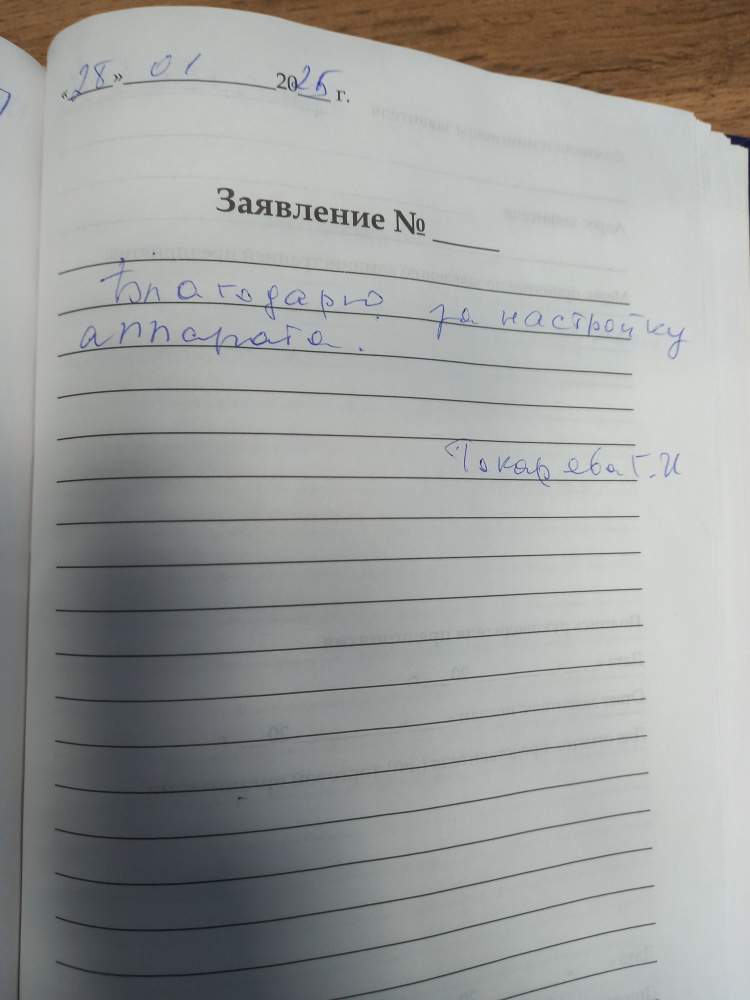 «28» 01 2026 г.
Заявление №
Благодарю за настройку
аппарата.
Токарева Г.И